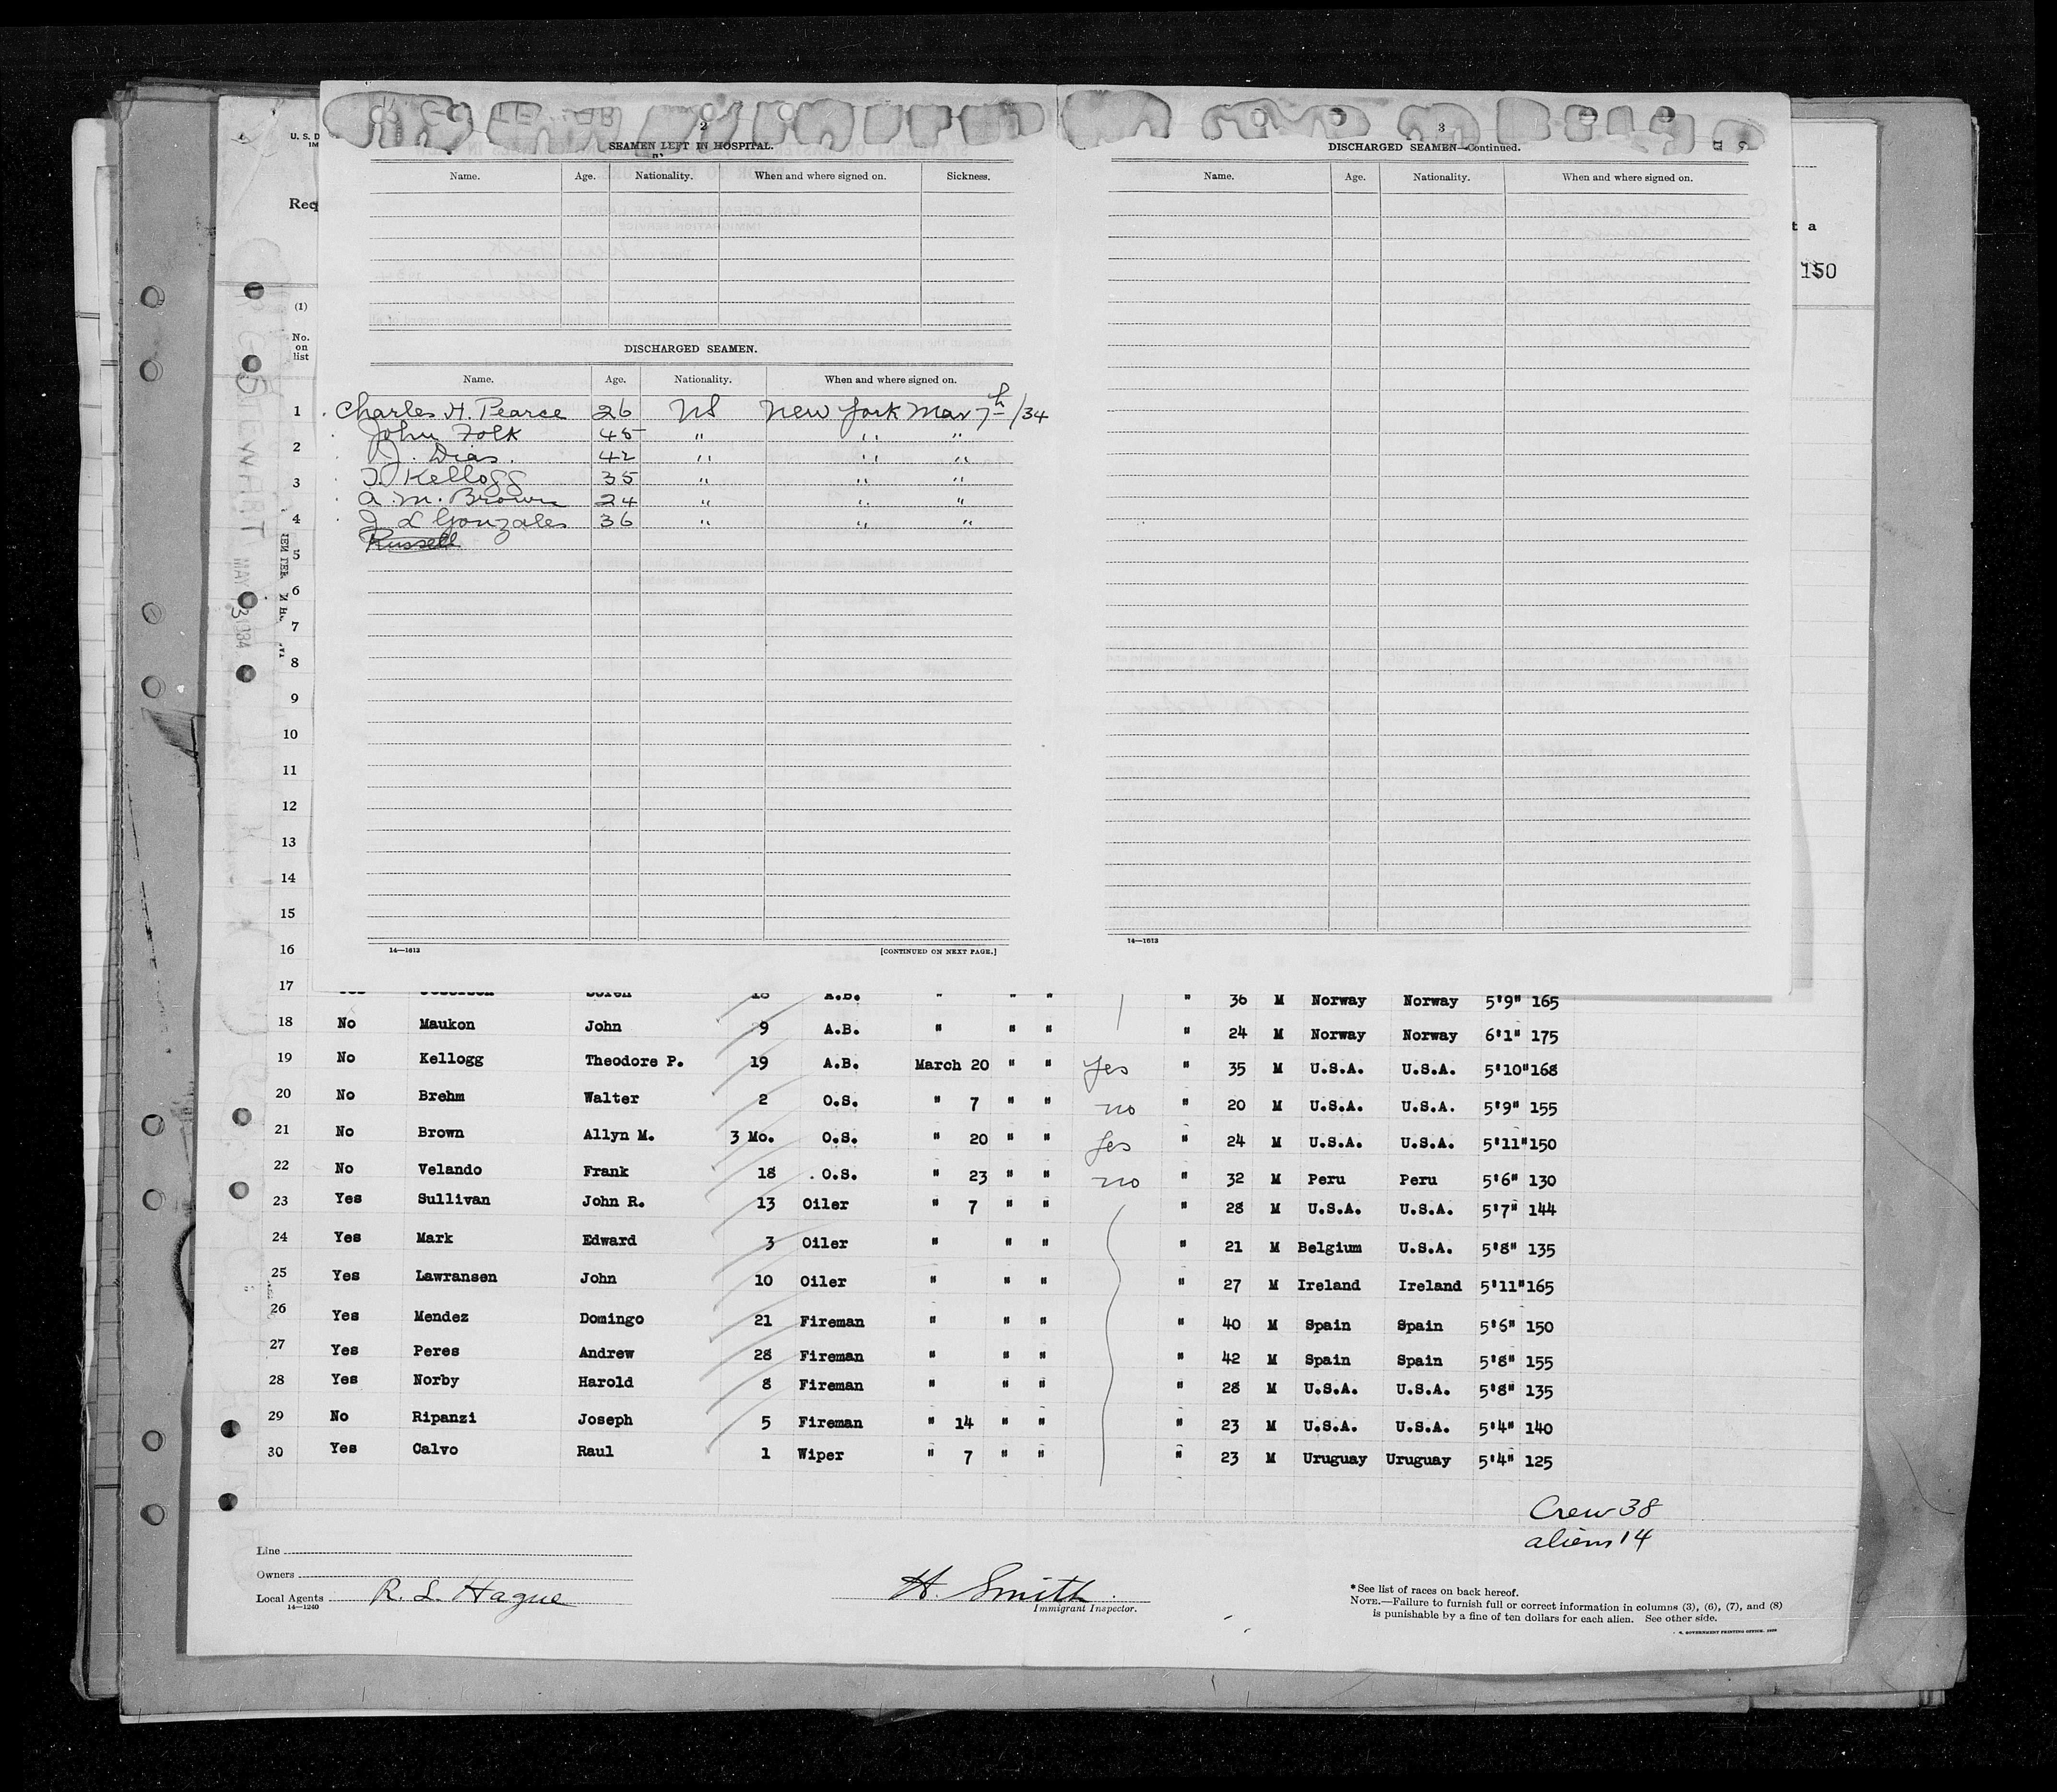 U. S. D
IM
Req
(1)
No.
on
list
2
SEAMEN LEFT IN HOSPITAL.
Name. Age. Nationality. When and where signed on. Sickness.
DISCHARGED SEAMEN.
Name. Age. Nationality. When and where signed on.
Charles H. Pearce 26 US New York Mar 7th/34
John Folk 45 " " "
J. Dias. 42 " " "
T. Kellogg 35 " " "
A. M. Brown 24 " " "
J L Gonzales 36 " " "
Russell
14—1613 [CONTINUED ON NEXT PAGE.]
3
DISCHARGED SEAMEN—Continued.
Name. Age. Nationality. When and where signed on.
14—1613
t a
150
G. STEWART MAY 3 1934
1
2
3
4
5
6
7
8
9
10
11
12
13
14
15
16
17 Soren 18 A.B. " " " " 36 M Norway Norway 5'9" 165
18 No Maukon John 9 A.B. " " " " 24 M Norway Norway 6'1" 175
19 No Kellogg Theodore P. 19 A.B. March 20 " " Yes " 35 M U.S.A. U.S.A. 5'10" 168
20 No Brehm Walter 2 O.S. " 7 " " no " 20 M U.S.A. U.S.A. 5'9" 155
21 No Brown Allyn M. 3 Mo. O.S. " 20 " " Yes " 24 M U.S.A. U.S.A. 5'11" 150
22 No Velando Frank 18 . O.S. " 23 " " no " 32 M Peru Peru 5'6" 130
23 Yes Sullivan John R. 13 Oiler " 7 " " " 28 M U.S.A. U.S.A. 5'7" 144
24 Yes Mark Edward 3 Oiler " " " " 21 M Belgium U.S.A. 5'8" 135
25 Yes Lawransen John 10 Oiler " " " " 27 M Ireland Ireland 5'11" 165
26 Yes Mendez Domingo 21 Fireman " " " " 40 M Spain Spain 5'6" 150
27 Yes Peres Andrew 28 Fireman " " " " 42 M Spain Spain 5'8" 155
28 Yes Norby Harold 8 Fireman " " " " 28 M U.S.A. U.S.A. 5'8" 135
29 No Ripanzi Joseph 5 Fireman " 14 " " " 23 M U.S.A. U.S.A. 5'4" 140
30 Yes Calvo Raul 1 Wiper " 7 " " " 23 M Uruguay Uruguay 5'4" 125
Crew 38
aliens 14
Line
Owners
Local Agents R. L. Hague
14—1240
H. Smith
Immigrant Inspector.
*See list of races on back hereof.
NOTE.—Failure to furnish full or correct information in columns (3), (6), (7), and (8)
is punishable by a fine of ten dollars for each alien. See other side.
GOVERNMENT PRINTING OFFICE: